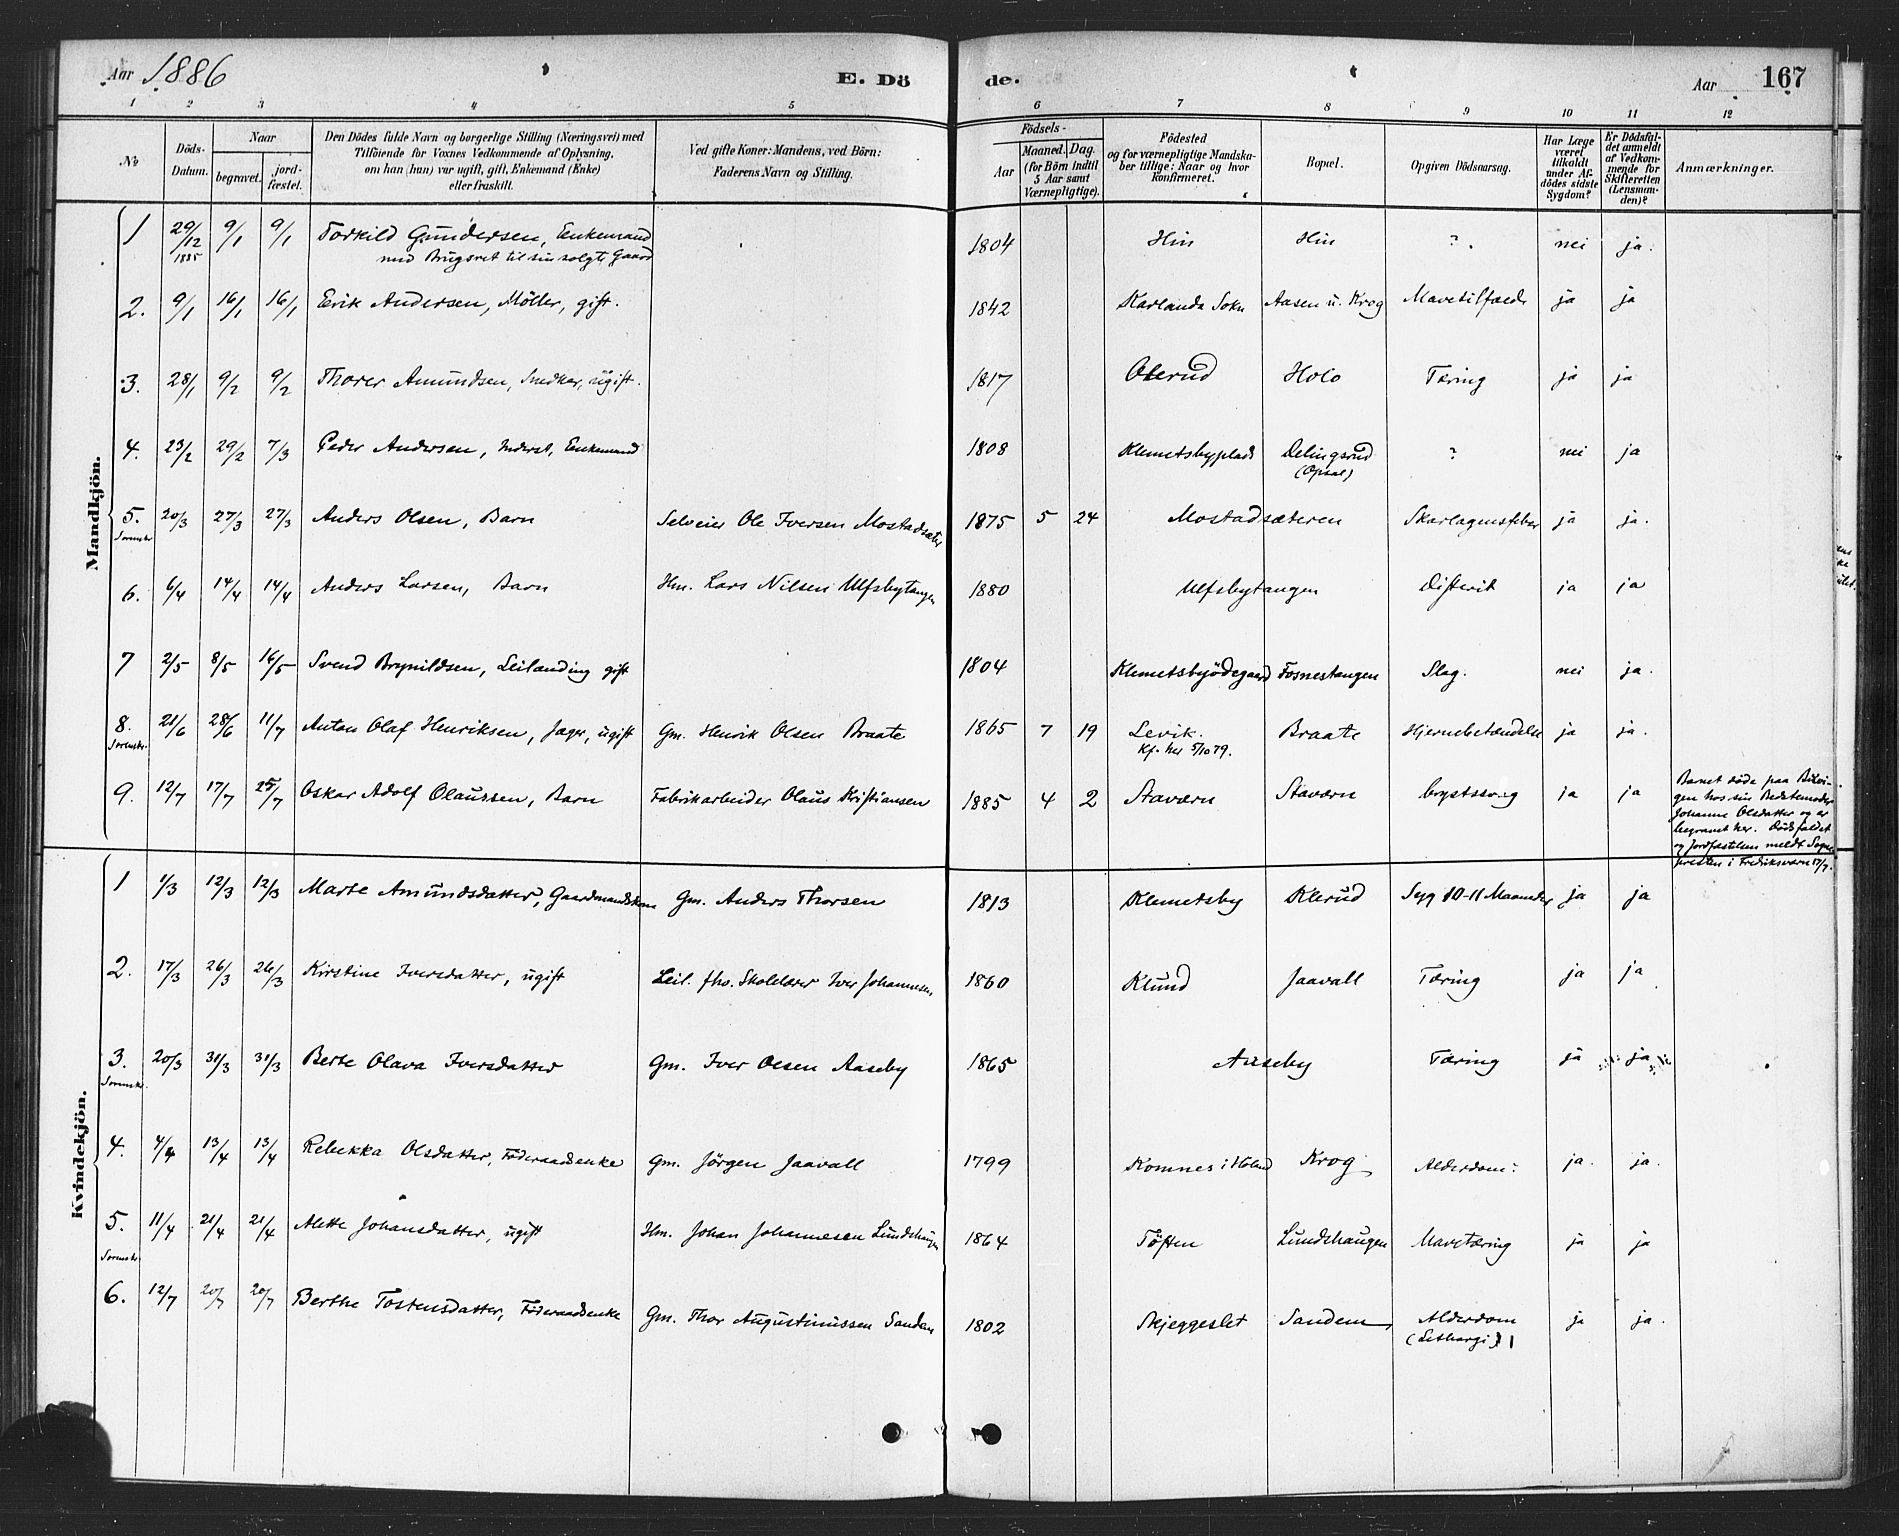 Aar 1886 E. Döde. Aar 167
1 2 3 4 5 6 7 8 9 10 11 12
No Döds-Datum. Naar begravet. jordfæstet. Den Dödes fulde Navn og borgerlige Stilling (Næringsvei) med Tilföiende for Voxnes Vedkommende af Oplysning, om han (hun) var ugift, gift, Enkemand (Enke) eller fraskilt. Ved gifte Koner: Mandens, ved Börn: Faderens Navn og Stilling. Födsels- Aar Maaned. Dag. (for Börn indtil 5 Aar samt Værnepligtige). Födested og for værnepligtige Mandskaber tillige: Naar og hvor konfirmeret. Bopæl. Opgiven Dödsaarsag. Har Læge været tilkaldt under Afdödes sidste Sygdom? Er Dödsfaldet anmeldt af Vedkommende for Skifteretten (Lensmanden)? Anmærkninger.
Mandkjön.
1 29/12 1885 9/1 9/1 Torkild Gundersen, Enkemand med Brugsret til sin solgte Gaard 1804 Hin Hin ? nei ja.
2. 9/1 16/1 16/1 Erik Andersen, Möller, gift. 1842 Karlanda Sokn Aasen u. Krog Mavetilfælde ja ja
3. 28/1 9/2 9/2 Thorer Amundsen, Snedker, ugift. 1817 Oterud Holo Tæring ja ja
4. 23/2 29/2 7/3 Peder Andersen, Inderst, Enkemand 1808 Klemetsbyplads Delingsrud (Opsal) ? nei ja
5. 20/3 27/3 27/3 Anders Olsen, Barn Selveier Ole Iversen Mostadsæter 1875 5 24 Mostadsæteren Skarlagensfeber ja ja.
6. 6/4 14/4 14/4 Anders Larsen, Barn Hm. Lars Nilsen Ulfsbytangen 1880 Ulfsbytangen Difterit ja ja
7 2/5 8/5 16/5 Svend Brynildsen, Leilænding gift 1804 Klemetsbyödegaard Fosnestangen Slag. nei ja.
8. 21/6 28/6 11/7 Anton Olaf Henriksen, Jæger, ugift Gm. Henrik Olsen Braate 1865 7 19 Levik. Kf. her 5/10 79. Braate Hjernebetændelse ja ja.
9. 12/7 17/7 25/7 Oskar Adolf Olaussen, Barn Fabrikarbeider Olaus Kristiansen 1885 4 2 Staværn Staværn brystsvag ja ja Barnet döde paa
gen hos sin Bedstemoder
Johanne Olsdatter og er
begravet her. Dödsfaldet
og Jordfæstelsen meldt Sogne
presten i Fredriksværn 17/7.
Kvindekjön.
1 1/3 12/3 12/3 Marte Amundsdatter, Gaardmandskone Gm. Anders Thorsen 1813 Klemetsby Klerud Syg 10-11 Maaneder ja ja
2. 17/3 26/3 26/3 Kirstine Iversdatter, ugift Leil. fhv. Skolelærer Iver Johannesen 1860 Klund Jaavall Tæring ja ja
3. 20/3 31/3 31/3 Berte Olava Iversdatter Gm. Iver Olsen Aaseby 1865 Aaseby Tæring ja ja
4. 4/4 13/4 13/4 Rebekka Olsdatter, Föderaadsenke Gm. Jörgen Jaavall 1799 Komnes i Höland Krog Alderdom ja. ja.
5. 11/4 21/4 21/4 Alette Johansdatter, ugift Hm. Johan Johannesen Lundshaugen 1864 Töften Lundshaugen Mavetæring ja ja
6. 12/7 20/7 20/7 Berthe Tostensdatter, Föderaadsenke Gm. Thor Augustinussen Sandem 1802 Skjeggeslet Sandem Alderdom (Lethargi) ja ja.